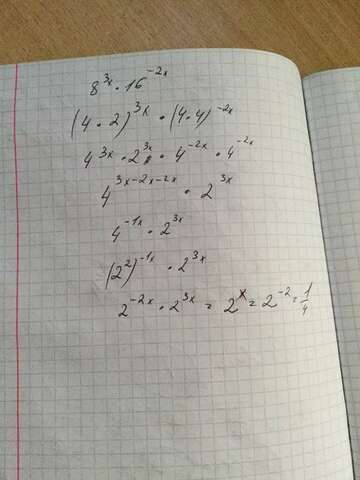 8^{3x} · 16^{-2x}
(4 · 2)^{3x} · (4·4)^{-2x}
4^{3x} · 2^{3x} · 4^{-2x} · 4^{-2x}
4^{3x-2x-2x} · 2^{3x}
4^{-1x} · 2^{3x}
(2^{2})^{-1x} · 2^{3x}
2^{-2x} · 2^{3x} = 2^{x} = 2^{-2} = \frac{1}{4}